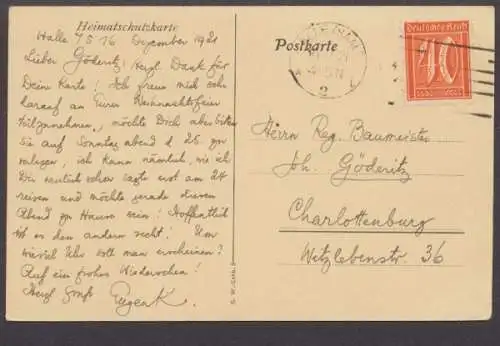 Heimatschutzkarte
Halle /S 16 Dezember 1921
Lieber Göderitz! Herzl Dank für
Deine Karte! Ich freue mich sehr
darauf an Eurer Weihnachtsfeier
teilzunehmen, möchte Dich aber bitten
sie auf Sonntag abend d 25. zu
verlegen, ich kann nämlich, wie ich
Dir neulich schon sagte erst am 24
reisen und möchte gerade diesen
Abend zu Hause sein! Hoffentlich
ist es den andern recht! Um
wieviel Uhr soll man erscheinen?
Auf ein frohes Wiedersehen!
Herzl Gruß Eugen K.
Postkarte
2
Deutsches Reich
40
Herrn Reg. Baumeister
Joh. Göderitz
Charlottenburg
Witzlebenstr. 36